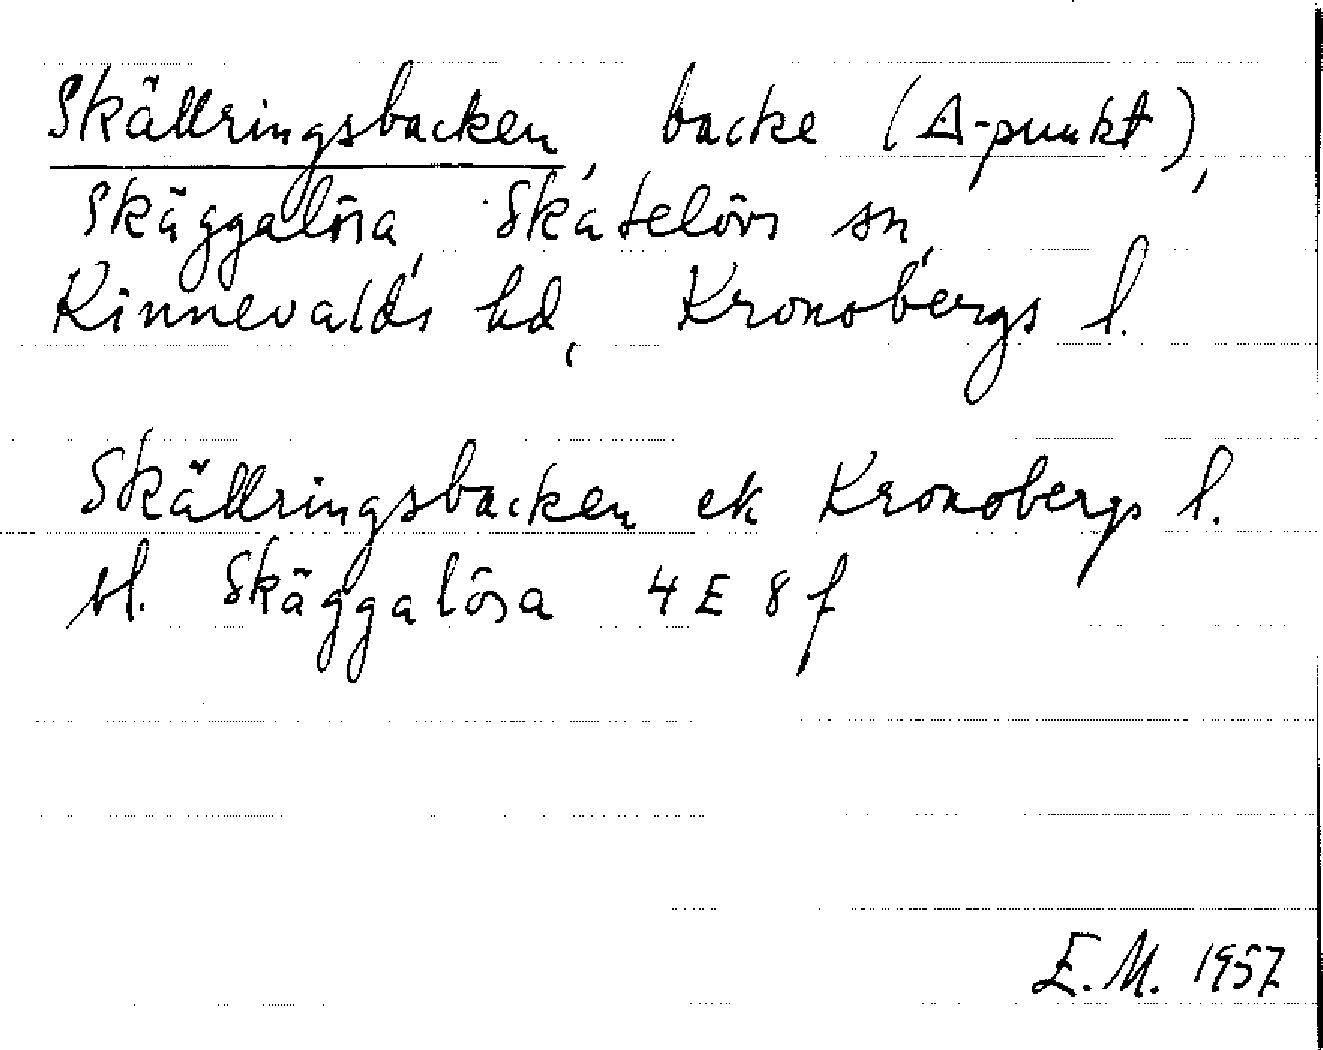 Skällringsbacken, backe (Δ-punkt),
Skäggalösa, Skatelövs sn,
Kinnevalds hd, Kronobergs l.
Skällringsbacken ek Kronobergs l.
sl. Skäggalösa 4 E 8 f
E. M. 1957